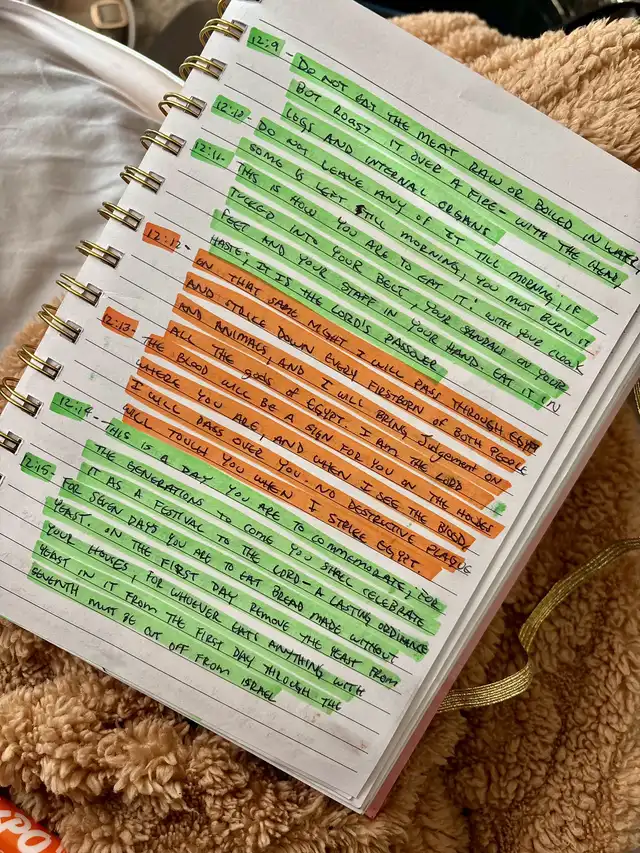 12:9 - DO NOT EAT THE MEAT RAW OR BOILED IN WATER
BUT ROAST IT OVER A FIRE - WITH THE HEAD
LEGS AND INTERNAL ORGANS
12:10 - DO NOT LEAVE ANY OF IT TILL MORNING; IF
SOME IS LEFT STILL MORNING, YOU MUST BURN IT
12:11 - THIS IS HOW YOU ARE TO EAT IT: WITH YOUR CLOAK
TUCKED INTO YOUR BELT, YOUR SANDALS ON YOUR
FEET AND YOUR STAFF IN YOUR HAND. EAT IT IN
HASTE; IT IS THE LORD'S PASSOVER
12:12 - ON THAT SAME NIGHT I WILL PASS THROUGH EGYPT
AND STRIKE DOWN EVERY FIRSTBORN OF BOTH PEOPLE
AND ANIMALS, AND I WILL BRING Judgement ON
ALL THE gods OF EGYPT. I AM THE LORD
12:13 - THE BLOOD WILL BE A SIGN FOR YOU ON THE HOUSES
WHERE YOU ARE, AND WHEN I SEE THE BLOOD,
I WILL PASS OVER YOU. NO DESTRUCTIVE PLAGUE
WILL TOUCH YOU WHEN I STRIKE EGYPT
12:14 - THIS IS A DAY YOU ARE TO COMMEMORATE; FOR
THE GENERATIONS TO COME YOU SHALL CELEBRATE
IT AS A FESTIVAL TO THE LORD - A LASTING ORDINANCE
12:15 - FOR SEVEN DAYS YOU ARE TO EAT BREAD MADE WITHOUT
YEAST. ON THE FIRST DAY REMOVE THE YEAST FROM
YOUR HOUSES, FOR WHOEVER EATS ANYTHING WITH
YEAST IN IT FROM THE FIRST DAY THROUGH THE
SEVENTH MUST BE CUT OFF FROM ISRAEL
XPO